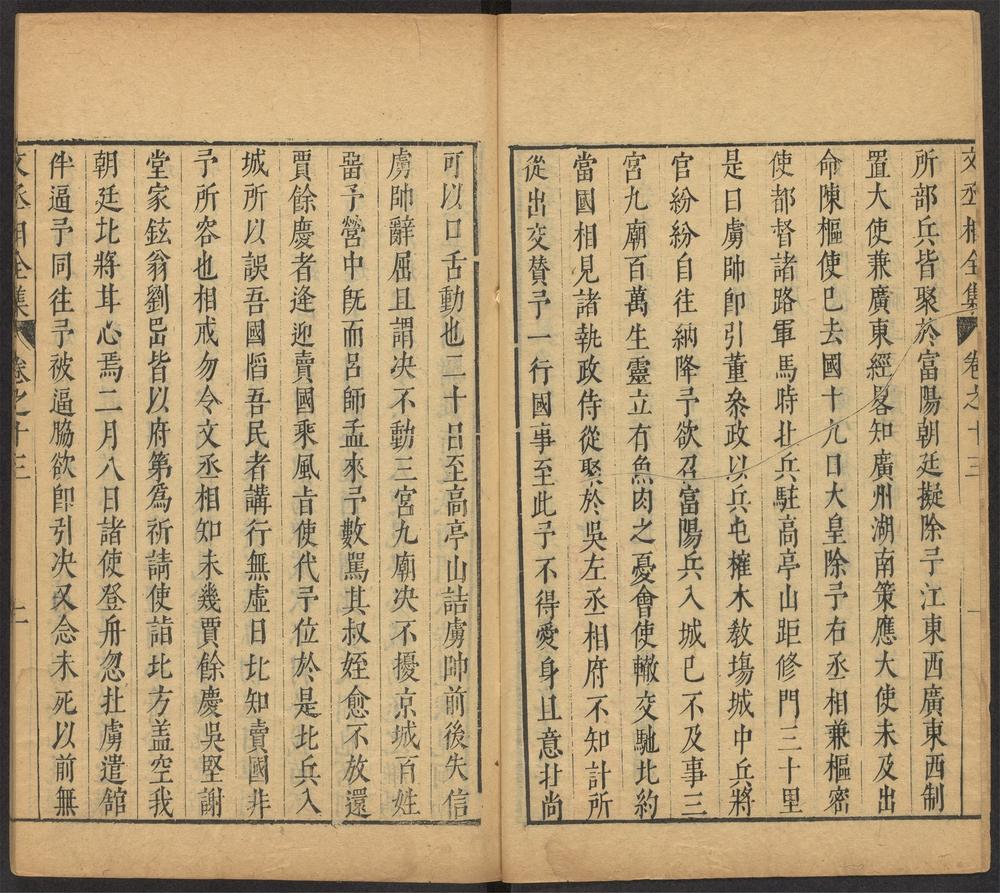 文丞相全集 卷之十三 一
所部兵皆聚於富陽朝廷擬除予江東西廣東西制
置大使兼廣東經畧知廣州湖南策應大使未及出
命陳樞使已去國十九日大皇除予右丞相兼樞密
使都督諸路軍馬時北兵駐高亭山距修門三十里
是日虜帥卽引董叅政以兵屯榷木敎塲城中兵將
官紛紛自往納降予欲召富陽兵入城已不及事三
宮九廟百萬生靈立有魚肉之憂會使轍交馳北約
當國相見諸執政侍從聚於吳左丞相府不知計所
從出交贊予一行國事至此予不得愛身且意北尚
可以口舌動也二十日至高亭山詰虜帥前後失信
虜帥辭屈且謂决不動三宮九廟决不擾京城百姓
畱予營中旣而呂師孟來予數罵其叔姪愈不放還
賈餘慶者逢迎賣國乘風旨使代予位於是北兵入
城所以誤吾國㥽吾民者講行無虛日北知賣國非
予所容也相戒勿令文丞相知未幾賈餘慶吳堅謝
堂家鉉翁劉岊皆以府第爲祈請使詣北方盖空我
朝廷北將甘心焉二月八日諸使登舟忽北虜遣舘
伴逼予同往予被逼脇欲卽引决又念未死以前無
文丞相全集 卷之十三 二